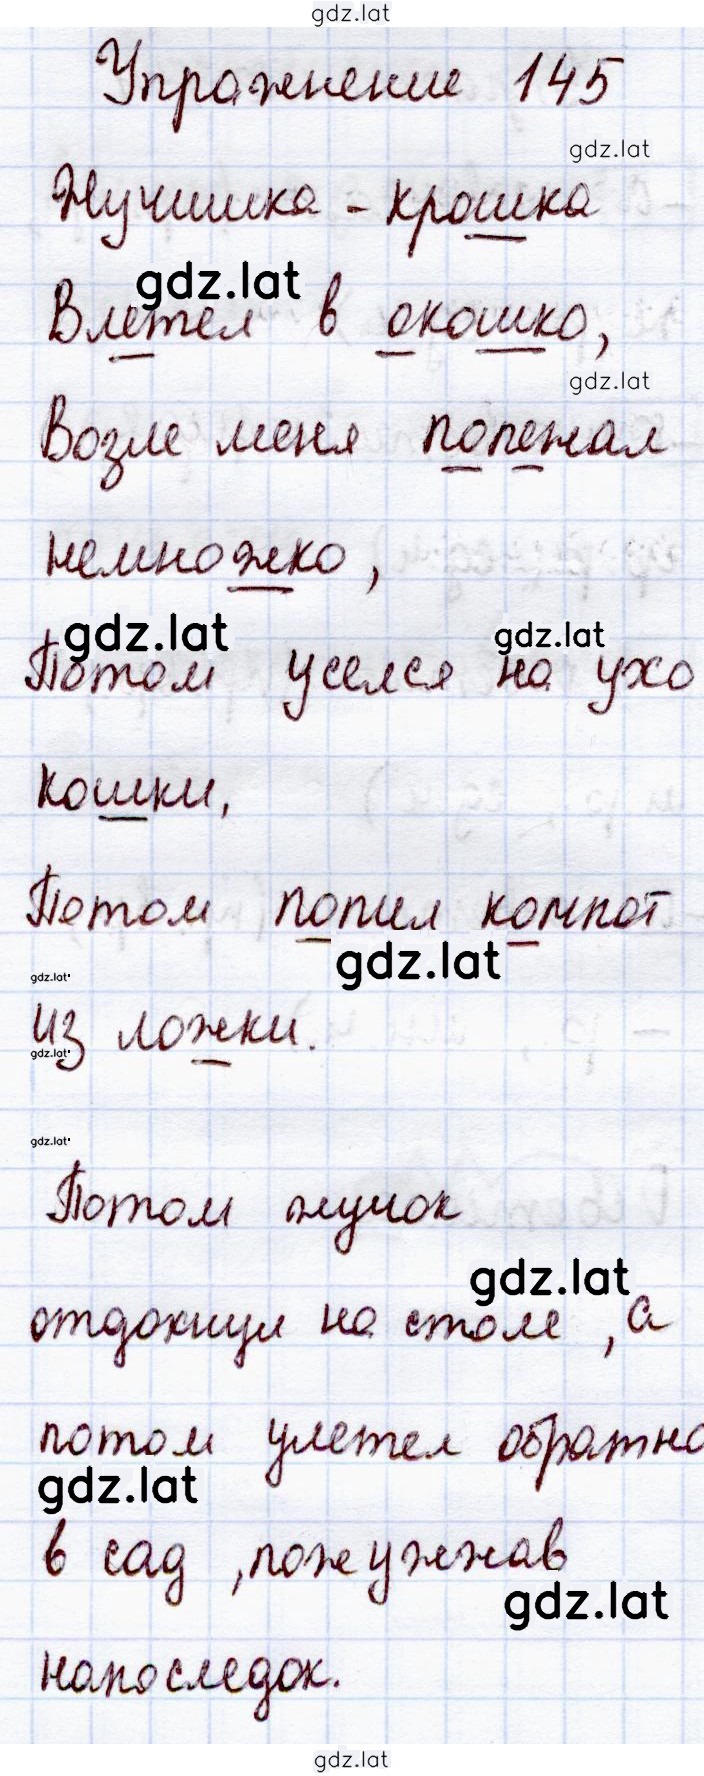 gdz.lat
Упражнение 145
gdz.lat
Жучишка - крошка
gdz.lat
Влетел в окошко,
gdz.lat
Возле меня полежал
немножко,
gdz.lat gdz.lat
Потом уселся на ухо
кошки,
Потом попил компот
gdz.lat
gdz.lat
из ложки.
gdz.lat
gdz.lat
Потом жучок
gdz.lat
отдохнул на столе, а
потом улетел обратно
gdz.lat
в сад, пожужжав
gdz.lat
напоследок.
gdz.lat